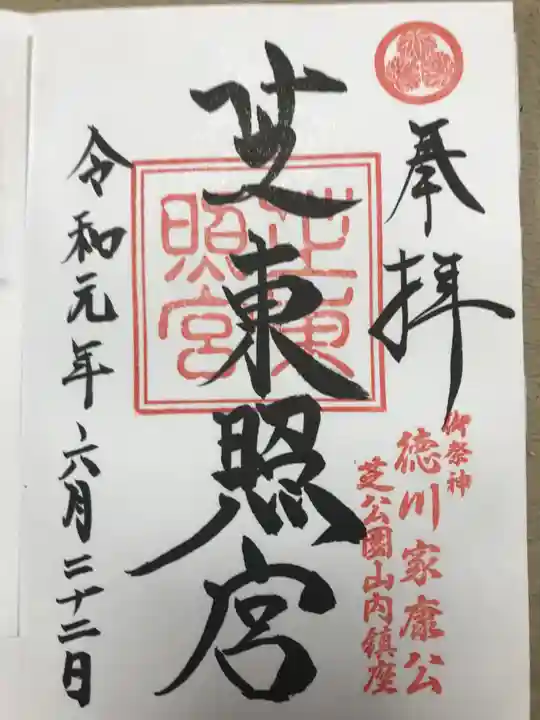 奉拝
御祭神
徳川家康公
芝公園山内鎮座
芝東照宮
芝東照宮
令和元年六月二十二日